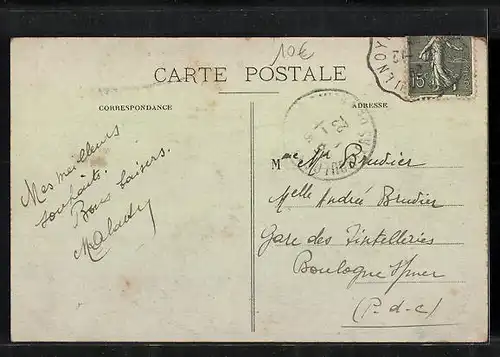 10€
CARTE POSTALE
CORRESPONDANCE
ADRESSE
15
Mes meilleurs
souhaits.
Bons baisers.
Mme Brudier
Melle André Brudier
Gare des Tintelleries
Boulogne s/mer
(P-d-C)